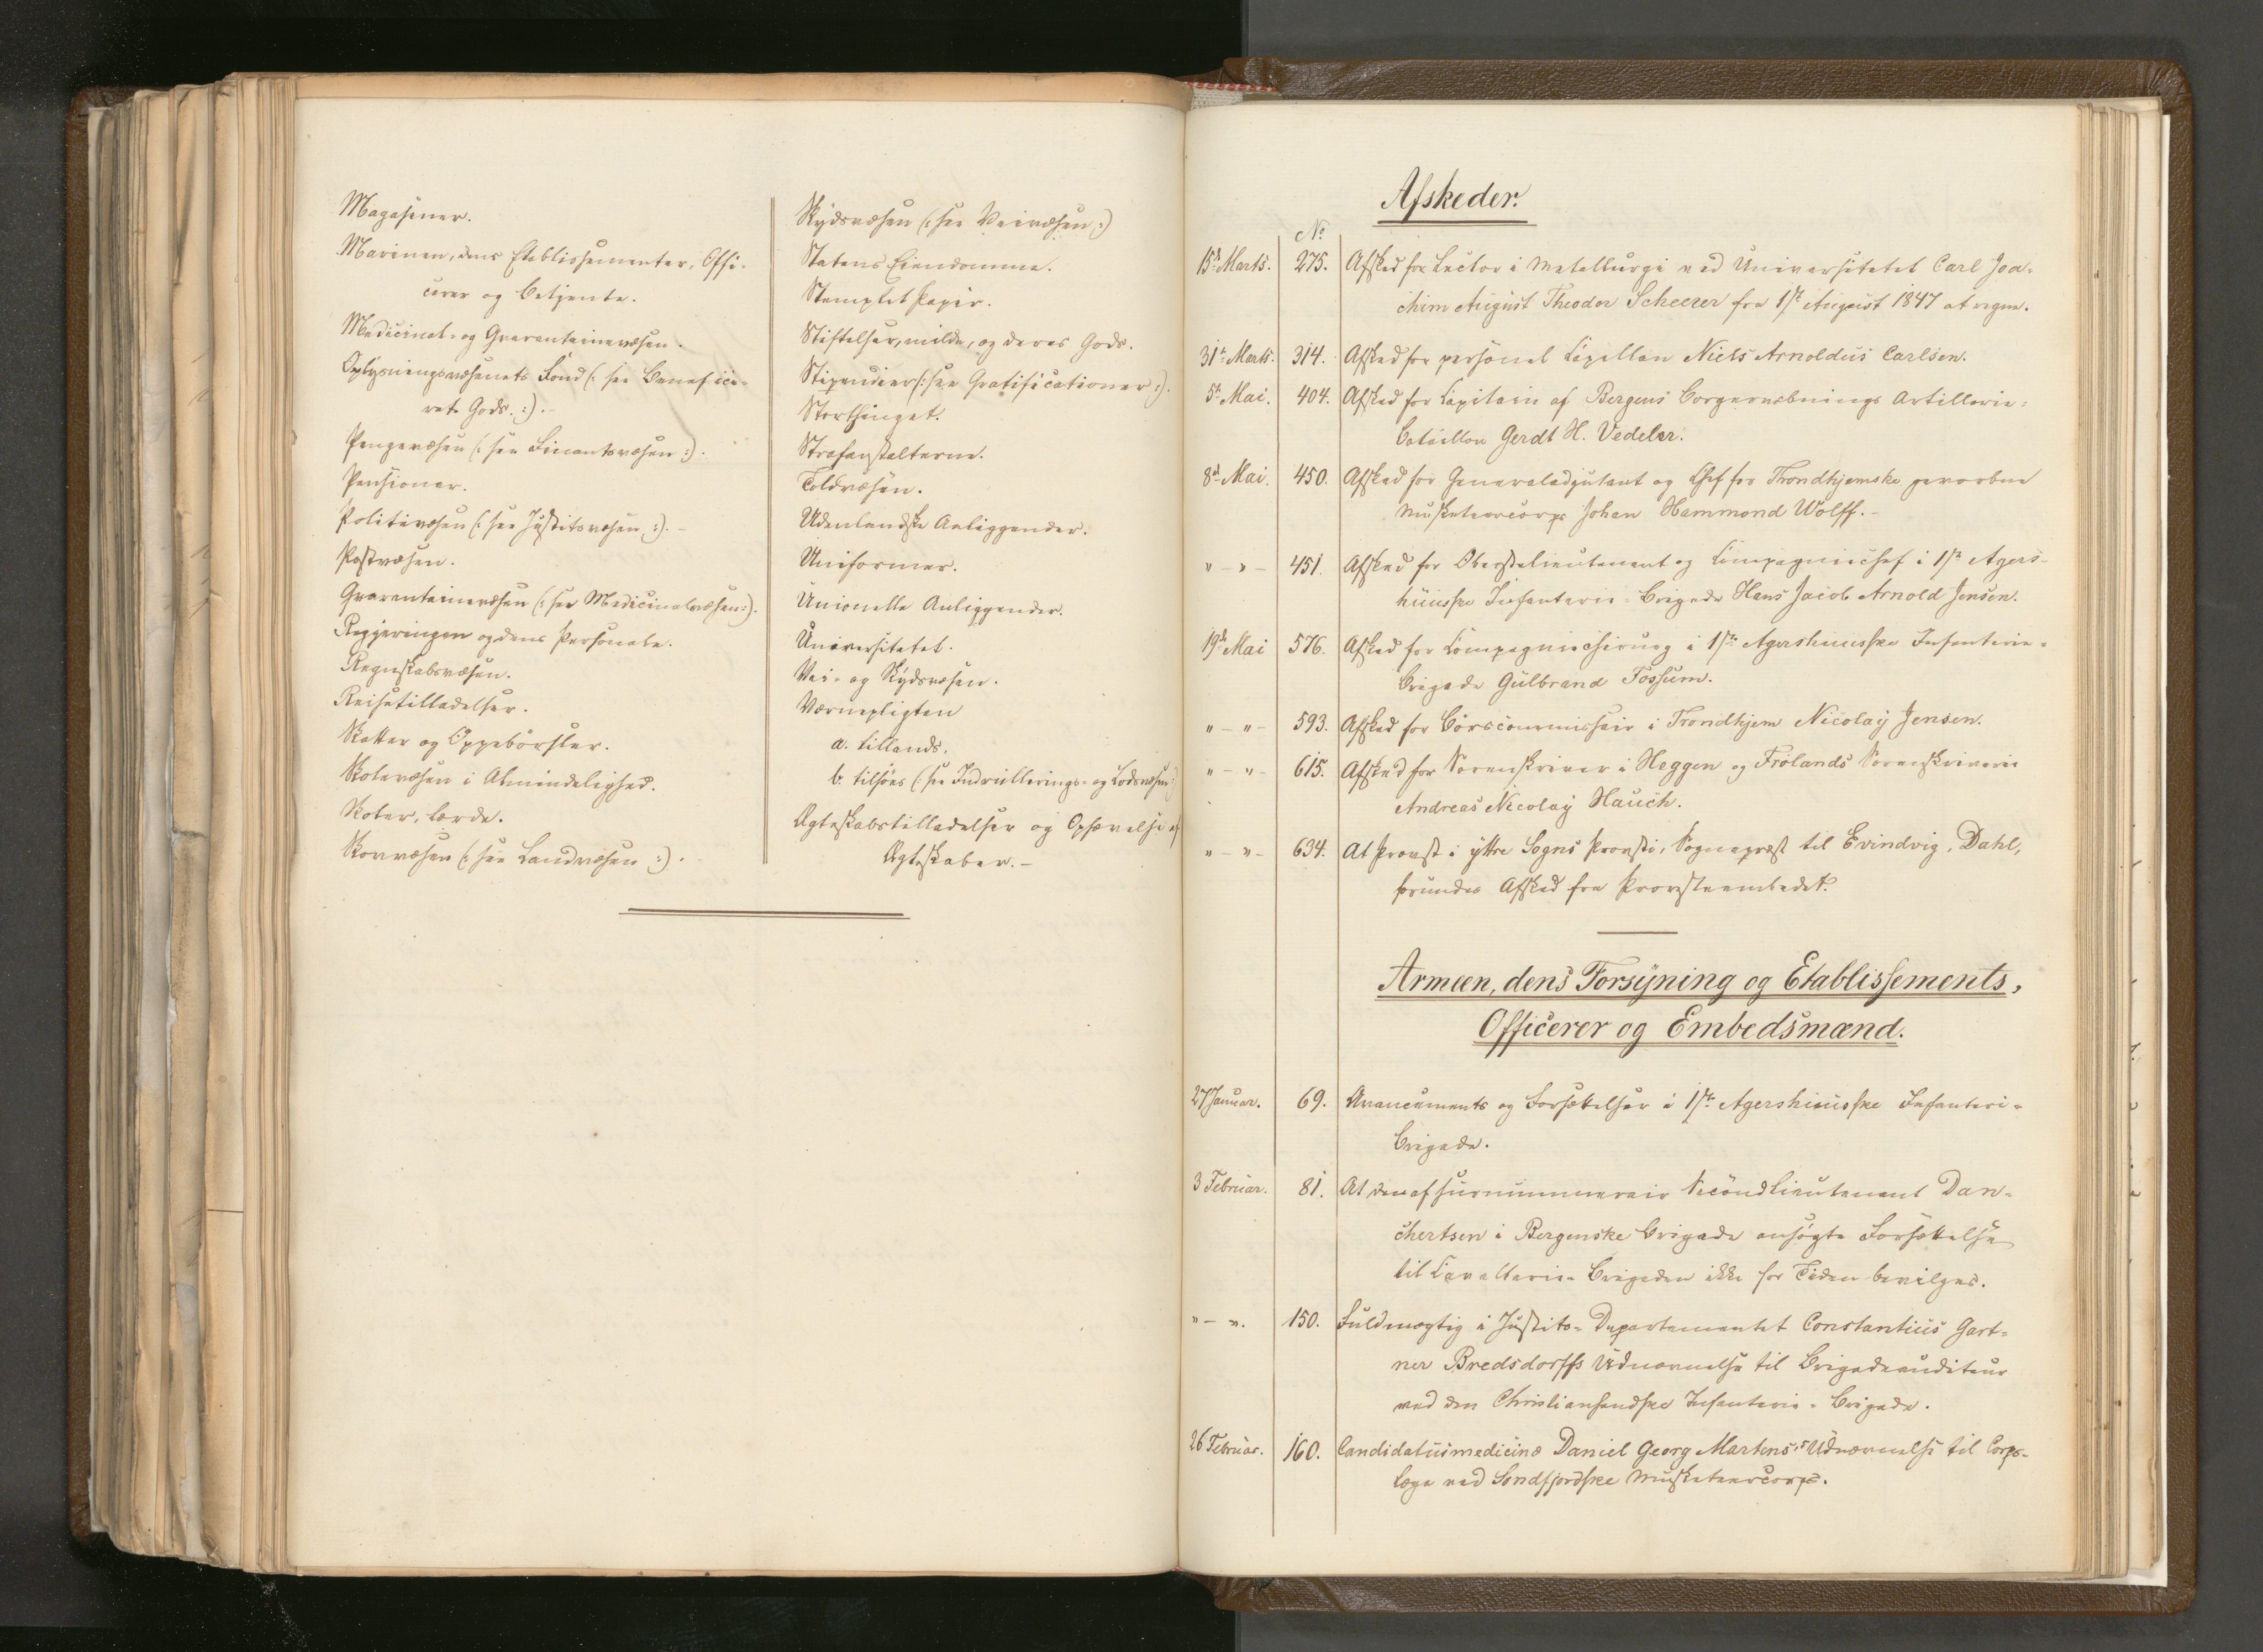 Magasiner.
Marinen, dens Etablissementer, Offi-
cerer og Betjente.
Medicinal- og Qvarantainevæsen.
Oplysningsvæsenets Fond (: see Benefice-
ret Gods. :). -
Pengevæsen (: see Finantsvæsen :).
Pensioner.
Politivæsen (: see Justitsvæsen :). -
Postvæsen.
Qvarantainevæsen (: see Medicinalvæsen :).
Regjeringen og dens Personale.
Regnskabsvæsen.
Reisetilladelser.
Skatter og Oppebörsler.
Skolevæsen i Almindelighed.
Skoler, lærde.
Skovvæsen (: see Landvæsen :).
Skydsvæsen (: see Veivæsen :)
Statens Eiendomme.
Stemplet Papir.
Stiftelser, milde, og deres Gods.
Stipendier (: see Gratificationer :).
Storthinget.
Strafanstalterne.
Toldvæsen.
Udenlandske Anliggender.
Uniformer.
Unionelle Anliggender.
Universitetet.
Vei- og Skydsvæsen.
Værnepligten
a. tillands.
b. tilsöes (: see Indrullerings- og Lodsvæsen :)
Ægteskabstilladelser og Ophævelse af
Ægteskaber. -
Afskeder.
No
15de Marts. 275. Afsked for Lector i Metallurgi ved Universitetet Carl Joa-
chim August Theodor Scheerer fra 1ste August 1847 at regne.
31te Marts. 314. Afsked for personel Capellan Niels Arnoldus Carlsen.
5te Mai. 404. Afsked for Capitain af Bergens Borgervæbnings Artillerie-
Bataillon Gerdt H. Vedeler.
8de Mai. 450. Afsked for Generaladjutant og Chef for Trondhjemske gevorbne
Musketeercorps Johan Hammond Wolff. -
" - " - 451. Afsked for Oberstlieutenant og Compagniechef i 1ste Agers-
huusske Infanterie-Brigade Hans Jacob Arnold Jensen.
19de Mai 576. Afsked for Compagniechirurg i 1ste Agershuusske Infanterie-
Brigade Gulbrand Fossum.
" - " - 593. Afsked for Börscommissair i Trondhjem Nicolay Jensen.
" - " - 615. Afsked for Sorenskriver i Heggen og Frölands Sorenskriverie
Andreas Nicolay Hauch.
" - " - 634. At Provst i yttre Sogns Provsti, Sognepræst til Evindvig, Dahl,
Afsked fra Provsteembedet.
Armeen, dens Forsyning og Etablissements,
Officerer og Embedsmænd.
27 Januar. 69. Avancements og Forsættelser i 1ste Agershuusske Infanteri-
Brigade.
3 Februar. 81. At den af surnummerair Secondlieutenant Dan-
chertsen i Bergenske Brigade ansögte Forsættelse
til Cavallerie-Brigaden ikke for Tiden bevilges.
" - ". 150. Fuldmægtig i Justits-Departementet Constantius Gart-
ner Bredsdorffs Udnævnelse til Brigadeauditeur
ved den Christiansandske Infanterie-Brigade.
26 Februar. 160. Candidatus medicinæ Daniel Georg Martens's Udnævnelse til Corps-
læge ved Söndfjordske Musketeercorps.